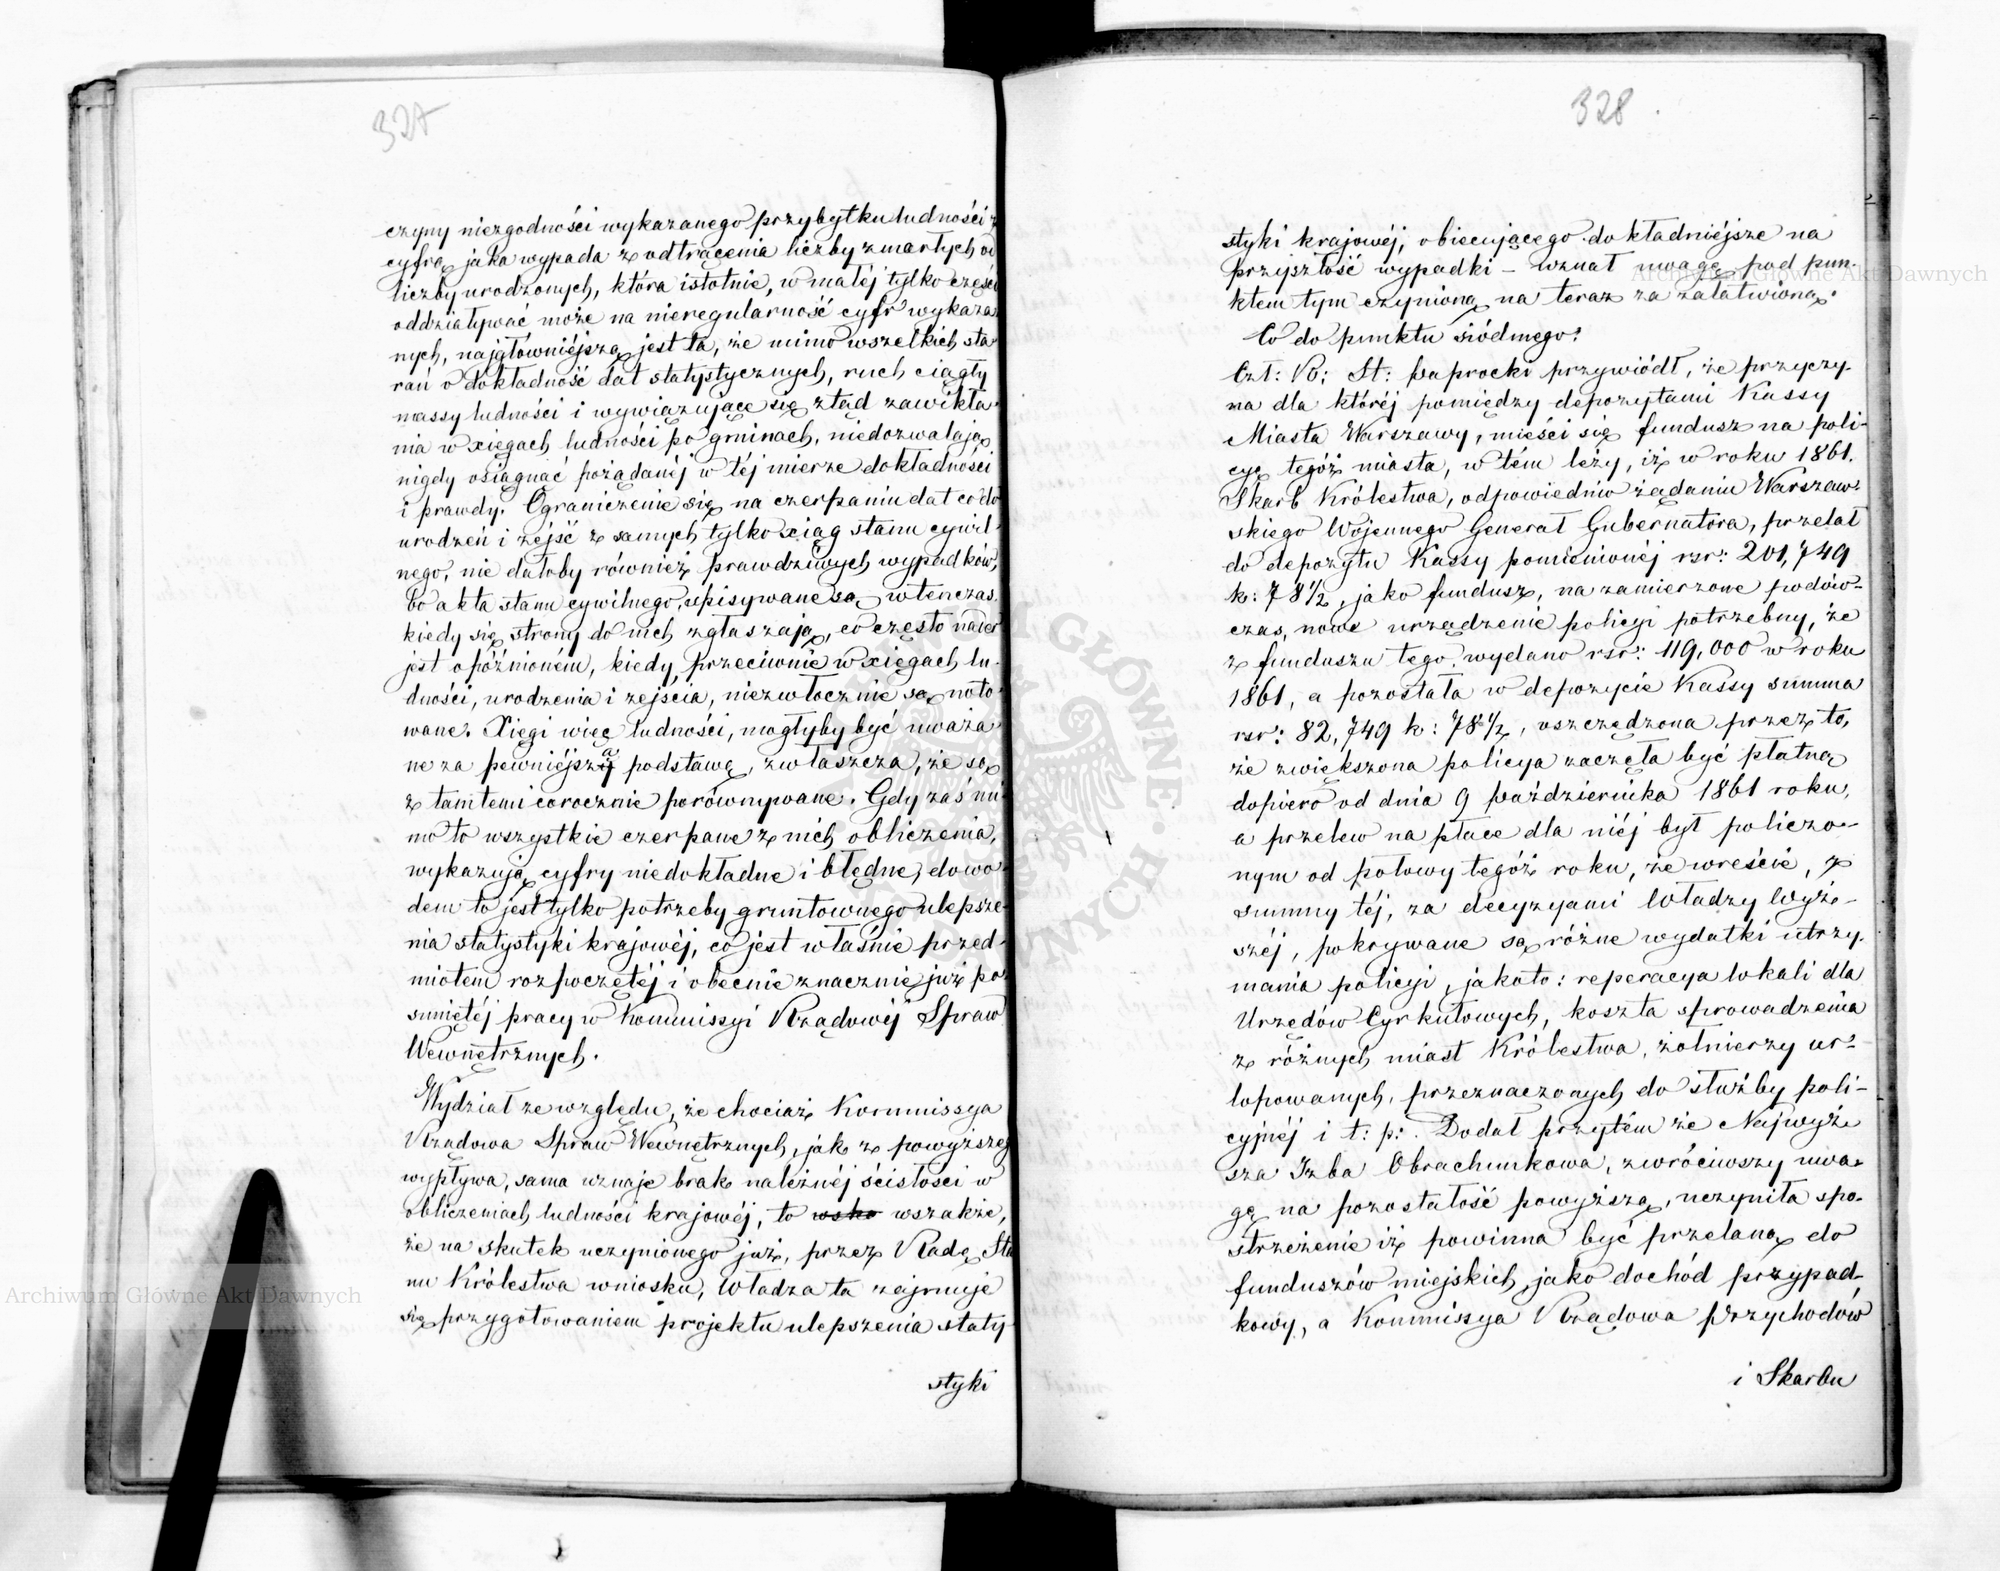 327
czyny niezgodności wykazanego przybytku ludności z
cyfrą, jaka wypada z odtrącenia liczby zmarłych od
liczby urodzonych, która istotnie, w małéj tylko części
oddziaływać może na nieregularność cyfr wykaza
nych, najgłówniéjszą jest ta, że mimo wszelkich sta
rań o dokładność dat statystycznych, ruch ciągły
massy ludności i wywiązujące się ztąd zawikła-
nia w xięgach ludności po gminach, niedozwalają
nigdy osiągnąć pożądanéj w téj mierze dokładności
i prawdy. Ograniczenie się na czerpaniu dat co do
urodzeń i zejść z samych tylko xiąg stanu cywil-
nego, nie dałoby również prawdziwych wypadków,
bo akta stanu cywilnego, spisywane są wtenczas,
kiedy się strony do nich zgłaszają, co często nader
jest opóźnioném, kiedy przeciwnie w xięgach lu-
dności, urodzenia i zejścia, niezwłocznie są noto
wane. Xięgi więc ludności, mogłyby być uważa
ne za pewniejszą podstawę, zwłaszcza, że są
z tamtemi corocznie porównywane. Gdy zaś mi
mo to wszystkie czerpane z nich obliczenia,
wykazują cyfry niedokładne i błędne, dowo-
dem to jest tylko potrzeby gruntownego ulepsze-
nia statystyki krajowéj, co jest właśnie przed-
miotem rozpoczętéj i obecnie znacznie już po
suniętéj pracy w Kommissyi Rządowéj Spraw
Wewnętrznych.
Wydział ze względu, że chociaż Kommissya
Rządowa Spraw Wewnętrznych, jak z powyższego
wypływa, sama uznaje brak należnéj ścisłości w
obliczeniach ludności krajowéj, to wsko wszakże,
że na skutek uczynionego już, przez Radę Sta
nu Królestwa wniosku, Władza ta zajmuje
się przygotowaniem projektu ulepszenia staty-
styki
328.
styki krajowéj, obiecującego dokładniéjsze na
przyszłość wypadki – uznał uwagę pod pun-
ktem tym czynioną na teraz za załatwioną.
Co do punktu siódmego:
Czł: R: St: Paprocki przywiódł, że przyczy-
na dla któréj pomiędzy depozytami Kassy
Miasta Warszawy, mieści się fundusz na poli-
cyę tegóż miasta, w tém leży, iż w roku 1861.
Skarb Królestwa, odpowiednio żądaniu Warszaw-
skiego Wojennego Generał Gubernatora, przelał
do depozytu Kassy pomienionéj rsr: 201,749
k: 78½, jako fundusz, na zamierzone podów-
czas, nowe urządzenie policyi potrzebny, że
z funduszu tego, wydano rsr: 119,000 w roku
1861, a pozostała w depozycie Kassy summa
rsr: 82,749 k: 78½, oszczędzona przez to,
że zwiększona policya zaczęła być płatną
dopiero od dnia 9 Października 1861 roku,
a przelew na płace dla niéj był policzo-
nym od połowy tegóż roku, że wreście, z
summy téj, za decyzyami Władzy Wyż-
széj, pokrywane są różne wydatki utrzy-
mania policyi, jakoto: reperacya lokali dla
Urzędów Cyrkułowych, koszta sprowadzenia
z różnych miast Królestwa, żołnierzy ur-
lopowanych, przeznaczonych do służby poli-
cyjnéj i t: p:. Dodał przytém że Najwyż-
sza Izba Obrachunkowa, zwróciwszy uwa-
gę na pozostałość powyższą, uczyniła spo-
strzeżenie iż powinna być przelaną do
funduszów miejskich, jako dochód przypad-
kowy, a Kommissya Rządowa Przychodów
i Skarbu
Archiwum Główne Akt Dawnych
Archiwum Główne Akt Dawnych